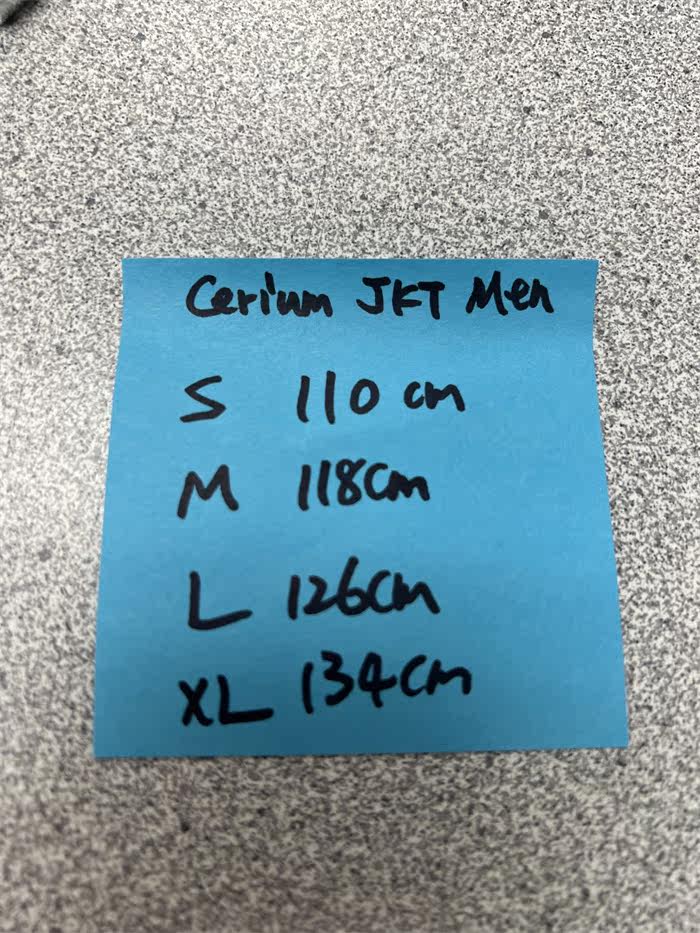 Cerium JKT Men
S 110 cm
M 118cm
L 126cm
XL 134cm